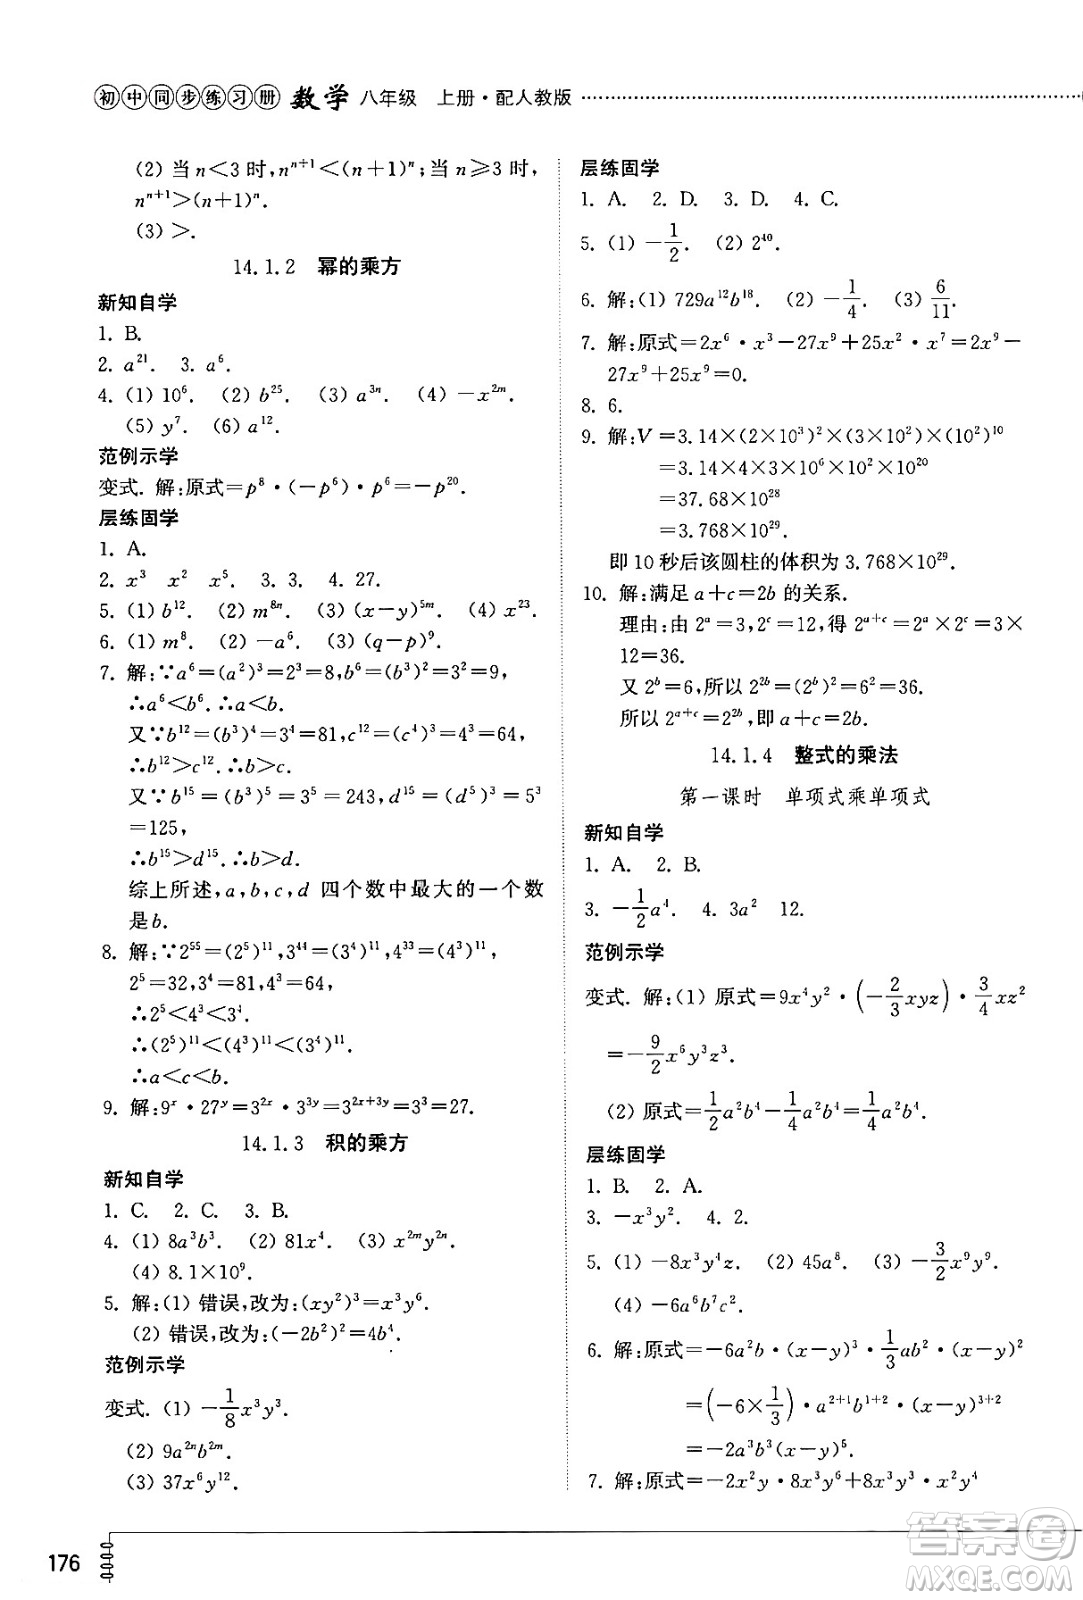 初中同步练习册 数学 八年级 上册·配人教版
(2) 当 n<3 时,nⁿ⁺¹<(n+1)ⁿ;当 n≥3 时,
nⁿ⁺¹>(n+1)ⁿ.
(3) >.
14.1.2 幂的乘方
新知自学
1. B.
2. a²¹. 3. a⁶.
4. (1) 10⁶. (2) b²⁵. (3) a³ⁿ. (4) -x²ᵐ.
(5) y⁷. (6) a¹².
范例示学
变式. 解:原式=p⁸·(-p⁶)·p⁶=-p²⁰.
层练固学
1. A.
2. x³ x² x⁵. 3. 3. 4. 27.
5. (1) b¹². (2) m⁸ⁿ. (3) (x-y)⁵ᵐ. (4) x²³.
6. (1) m⁸. (2) -a⁶. (3) (q-p)⁹.
7. 解:∵a⁶=(a²)³=2³=8,b⁶=(b³)²=3²=9,
∴a⁶<b⁶.∴a<b.
又∵b¹²=(b³)⁴=3⁴=81,c¹²=(c⁴)³=4³=64,
∴b¹²>c¹².∴b>c.
又∵b¹⁵=(b³)⁵=3⁵=243,d¹⁵=(d⁵)³=5³
=125,
∴b¹⁵>d¹⁵.∴b>d.
综上所述,a,b,c,d 四个数中最大的一个数
是b.
8. 解:∵2⁵⁵=(2⁵)¹¹,3⁴⁴=(3⁴)¹¹,4³³=(4³)¹¹,
2⁵=32,3⁴=81,4³=64,
∴2⁵<4³<3⁴.
∴(2⁵)¹¹<(4³)¹¹<(3⁴)¹¹.
∴a<c<b.
9. 解:9ˣ·27ʸ=3²ˣ·3³ʸ=3²ˣ⁺³ʸ=3³=27.
14.1.3 积的乘方
新知自学
1. C. 2. C. 3. B.
4. (1) 8a³b³. (2) 81x⁴. (3) x²ᵐy²ⁿ.
(4) 8.1×10⁹.
5. 解:(1) 错误,改为:(xy²)³=x³y⁶.
(2) 错误,改为:(-2b²)²=4b⁴.
范例示学
变式. (1) -1/8x³y³.
(2) 9a²ⁿb²ᵐ.
(3) 37x⁶y¹².
176
层练固学
1. A. 2. D. 3. D. 4. C.
5. (1) -1/2. (2) 2⁴⁰.
6. 解:(1) 729a¹²b¹⁸. (2) -1/4. (3) 6/11.
7. 解:原式=2x⁶·x³-27x⁹+25x²·x⁷=2x⁹-
27x⁹+25x⁹=0.
8. 6.
9. 解:V=3.14×(2×10³)²×(3×10²)×(10²)¹⁰
=3.14×4×3×10⁶×10²×10²⁰
=37.68×10²⁸
=3.768×10²⁹.
即 10 秒后该圆柱的体积为 3.768×10²⁹.
10. 解:满足 a+c=2b 的关系.
理由:由 2ᵃ=3,2ᶜ=12,得 2ᵃ⁺ᶜ=2ᵃ×2ᶜ=3×
12=36.
又 2ᵇ=6,所以 2²ᵇ=(2ᵇ)²=6²=36.
所以 2ᵃ⁺ᶜ=2²ᵇ,即 a+c=2b.
14.1.4 整式的乘法
第一课时 单项式乘单项式
新知自学
1. A. 2. B.
3. -1/2a⁴. 4. 3a² 12.
范例示学
变式. 解:(1) 原式=9x⁴y²·(-2/3xyz)·3/4xz²
=-9/2x⁶y³z³.
(2) 原式=1/2a²b⁴-1/4a²b⁴=1/4a²b⁴.
层练固学
1. B. 2. A.
3. -x³y². 4. 2.
5. (1) -8x³y⁴z. (2) 45a⁸. (3) -3/2x⁹y⁹.
(4) -6a⁶b⁷c².
6. 解:原式=-6a²b·(x-y)³·1/3ab²·(x-y)²
=(-6×1/3)·a²⁺¹b¹⁺²·(x-y)³⁺²
=-2a³b³(x-y)⁵.
7. 解:原式=-2x²y·8x³y³+8x²y·x³y⁴
答案圈
MXQE.COM